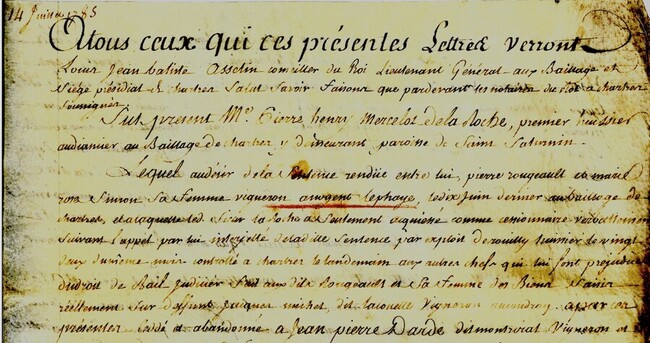 14 Juillet 1785
A tous ceux qui ces présentes Lettres verront
Louis Jean Batiste Asselin conseiller du Roi Lieutenant Général aux Bailliage et
Siége présidial de chartres Salut Savoir faisons que pardevant les notaires du Roi a chartres
soussignés
Fut present Me. Pierre henri Mercelot de la Roche, premier huissier
audiancier au Bailliage de chartres y demeurant paroisse de Saint Saturnin.
Lequel au désir de la Sentence rendüe entre lui, pierre rougeault et marie
rose Simon sa femme vigneron au nogent Lephaye, le dix juin dernier au bailliage de
chartres, et a laquelle led. Sieur la Roche a Seulement acquiessé comme cessionnaire verballement
suivant l'appel par lui interjetté de ladite Sentence par exploit de huissier le vingt
deux du même mois controllé a chartres le lendemain aux autres chefs qui lui font prejudice
du droit de Bail Judicier fait aux dits Rougeault et Sa femme des Biens saisis
réellement Sur deffunt Jacques michet, dit Vigneron
présentes Cédé et abandonné a Jean pierre Darde Vigneron et